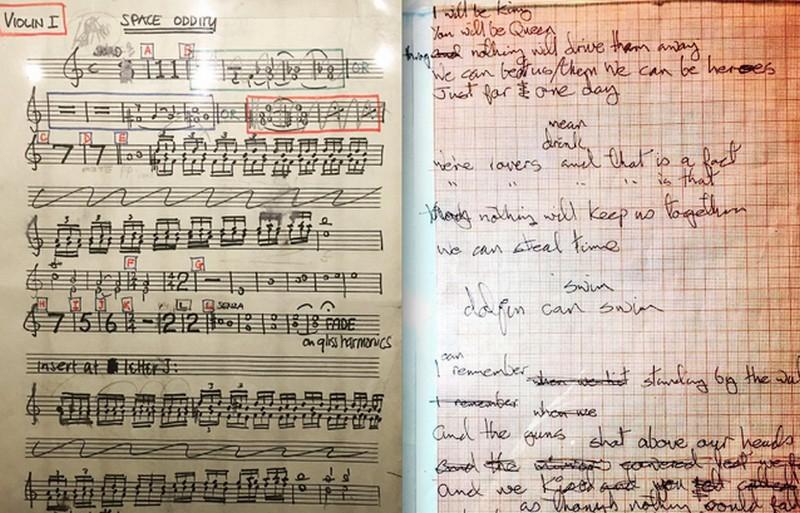 VIOLIN I
SPACE ODDITY
A
B
11
OR
OR
C
7
D
7
E
3
3
F
2
G
H
7
I
5
J
6
K
2
L
2
SENZA
FADE
on gliss harmonics
insert at letter J:
I will be King
You will be Queen
and nothing will drive them away
We can beat us/them We can be heroes
Just for one day
mean
drink
We're lovers and that is a fact
" " " " is that
nothing will keep us together
we can steal time
swim
dolfin can swim
can
I remmember when we standing by the wal
I remember when we
And the guns shot above our heads
And the covered
And we Kissed and you
as though nothing would fal